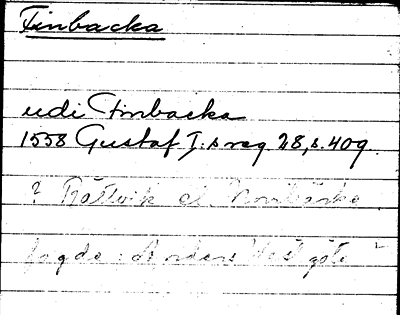 Finbacka
udi Finbacka
1558 Gustaf I:s reg 28, s. 409.
? Rättvik el. Norrbärke.
fogde: Anders Västgöte